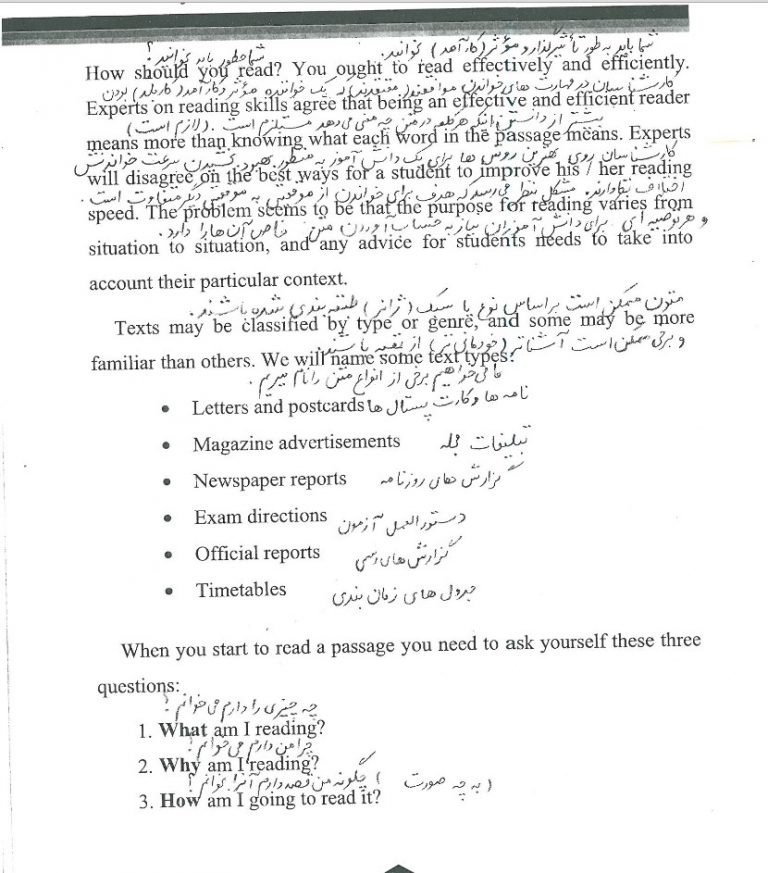 شما چطور باید بخوانید؟ شما باید به طور تأثیرگذار و مؤثر (کارآمد) بخوانید.
How should you read? You ought to read effectively and efficiently.
کارشناسان در مهارت های خواندن موافقند (معتقدند) که یک خواننده مؤثر و کارآمد (کاربلد) بودن
Experts on reading skills agree that being an effective and efficient reader
بیشتر از دانستن اینکه هر کلمه در متن چه معنی می دهد مستلزم است. (لازم است)
means more than knowing what each word in the passage means. Experts
کارشناسان روی بهترین روش ها برای یک دانش آموز به منظور بهبود بخشیدن سرعت خواندنش
will disagree on the best ways for a student to improve his / her reading
اختلاف نظر دارند. مشکل بنظر می رسد که هدف برای خواندن از موقعیتی به موقعیتی دیگر متفاوت است.
speed. The problem seems to be that the purpose for reading varies from
و هر توصیه ای برای دانش آموزان نیاز به حساب آوردن متن خاص آن ها را دارد.
situation to situation, and any advice for students needs to take into
account their particular context.
متون ممکن است بر اساس نوع یا سبک (ژانر) طبقه بندی شده باشند.
Texts may be classified by type or genre, and some may be more
و برخی ممکن است آشناتر (خودمانی تر) از بقیه باشند
familiar than others. We will name some text types:
ما می خواهیم برخی از انواع متن را نام ببریم.
• Letters and postcards نامه ها و کارت پستال ها
• Magazine advertisements تبلیغات مجله
• Newspaper reports گزارش های روزنامه
• Exam directions دستورالعمل آزمون
• Official reports گزارش های رسمی
• Timetables جدول های زمان بندی
When you start to read a passage you need to ask yourself these three
questions:
چه چیزی را دارم می خوانم؟
1. What am I reading?
چرا من دارم می خوانم؟
2. Why am I reading?
(به چه صورت) چگونه من قصد دارم آنرا بخوانم؟
3. How am I going to read it?